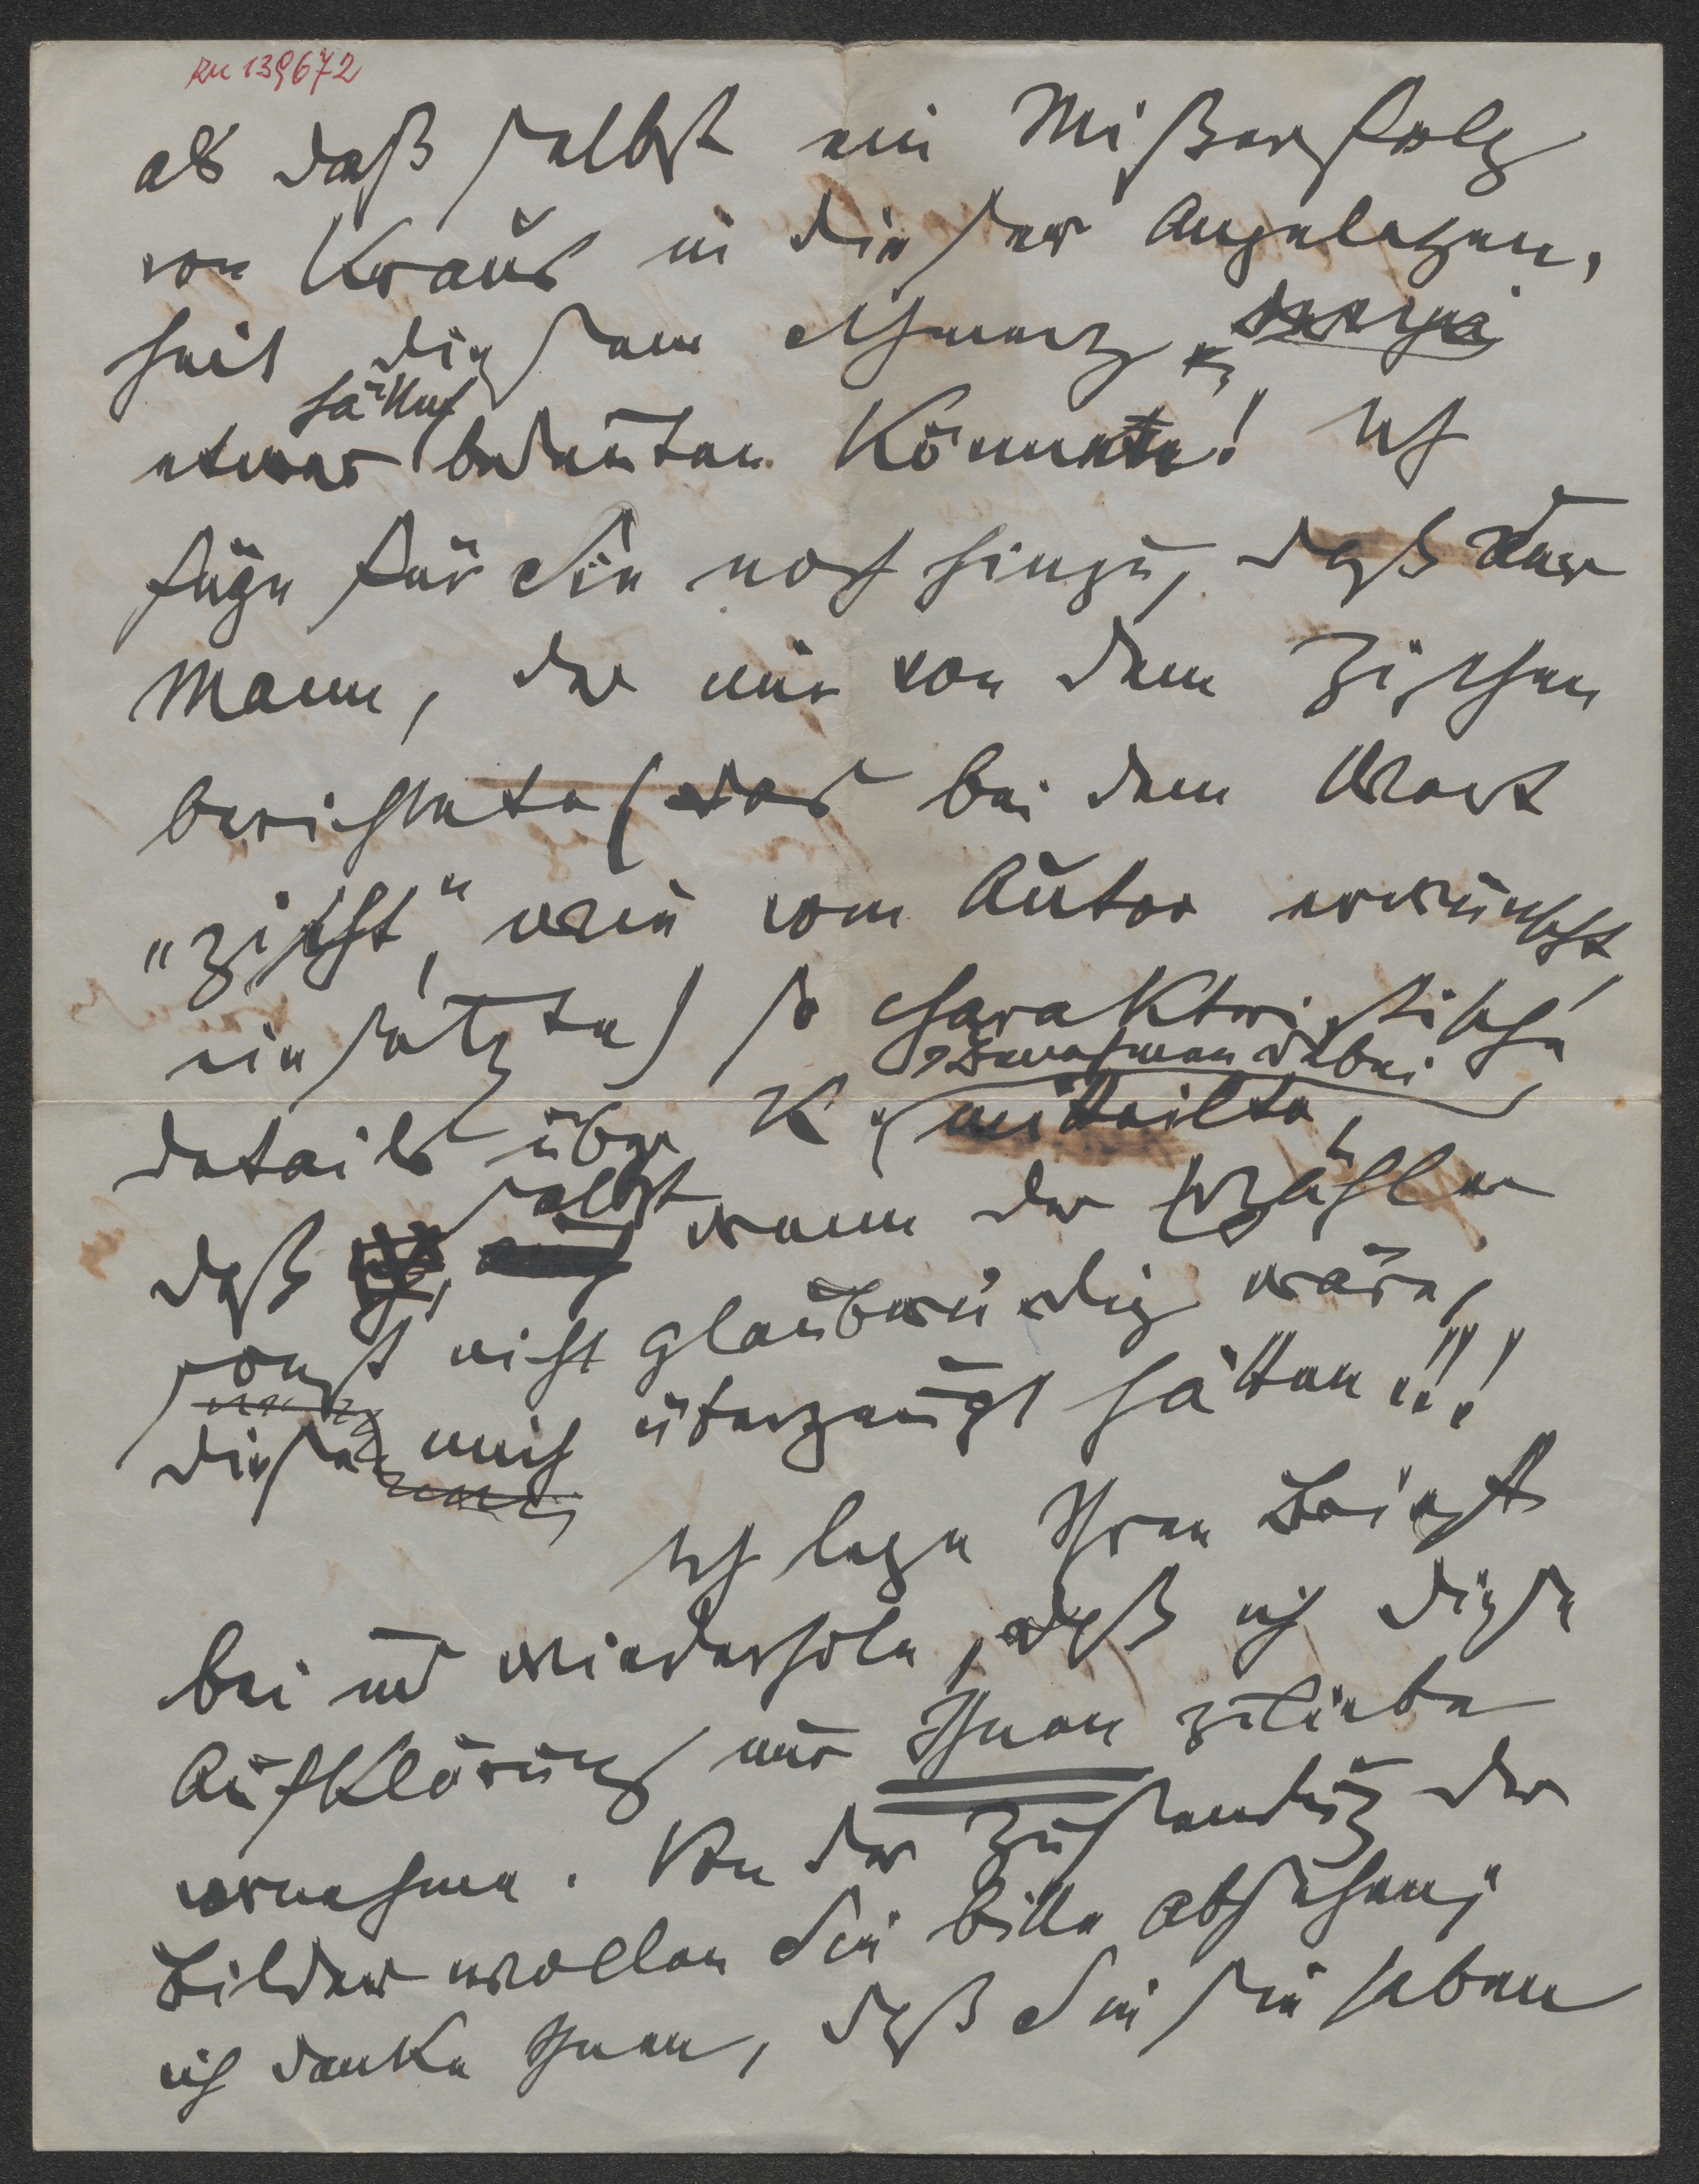 RN 139672
als daß selbst ein Mißerfolg
von Kraus in dieser Angelegen-
heit diesem Schmerz
Hälfte
etwas bedeuten könnte! Ich
füge für Sie noch hinzu, daß der
Mann, der mir von dem Zischen
berichtete (das bei dem Wort
„zischt“, wie vom Autor erwünscht,
einsetzte) so charakteristische
Benehmen dabei
details über K.'s mitteilte,
daß selbst wenn der Erzähler
sonst nicht glaubwürdig wäre,
diese mich überzeugt hätten!!!
Ich lege Ihren Brief
bei und wiederhole, daß ich diese
Aufklärung nur Ihnen zuliebe
vornehme. Von der Zusendung der
Bilder wollen Sie bitte absehen;
ich danke Ihnen, daß Sie sie haben